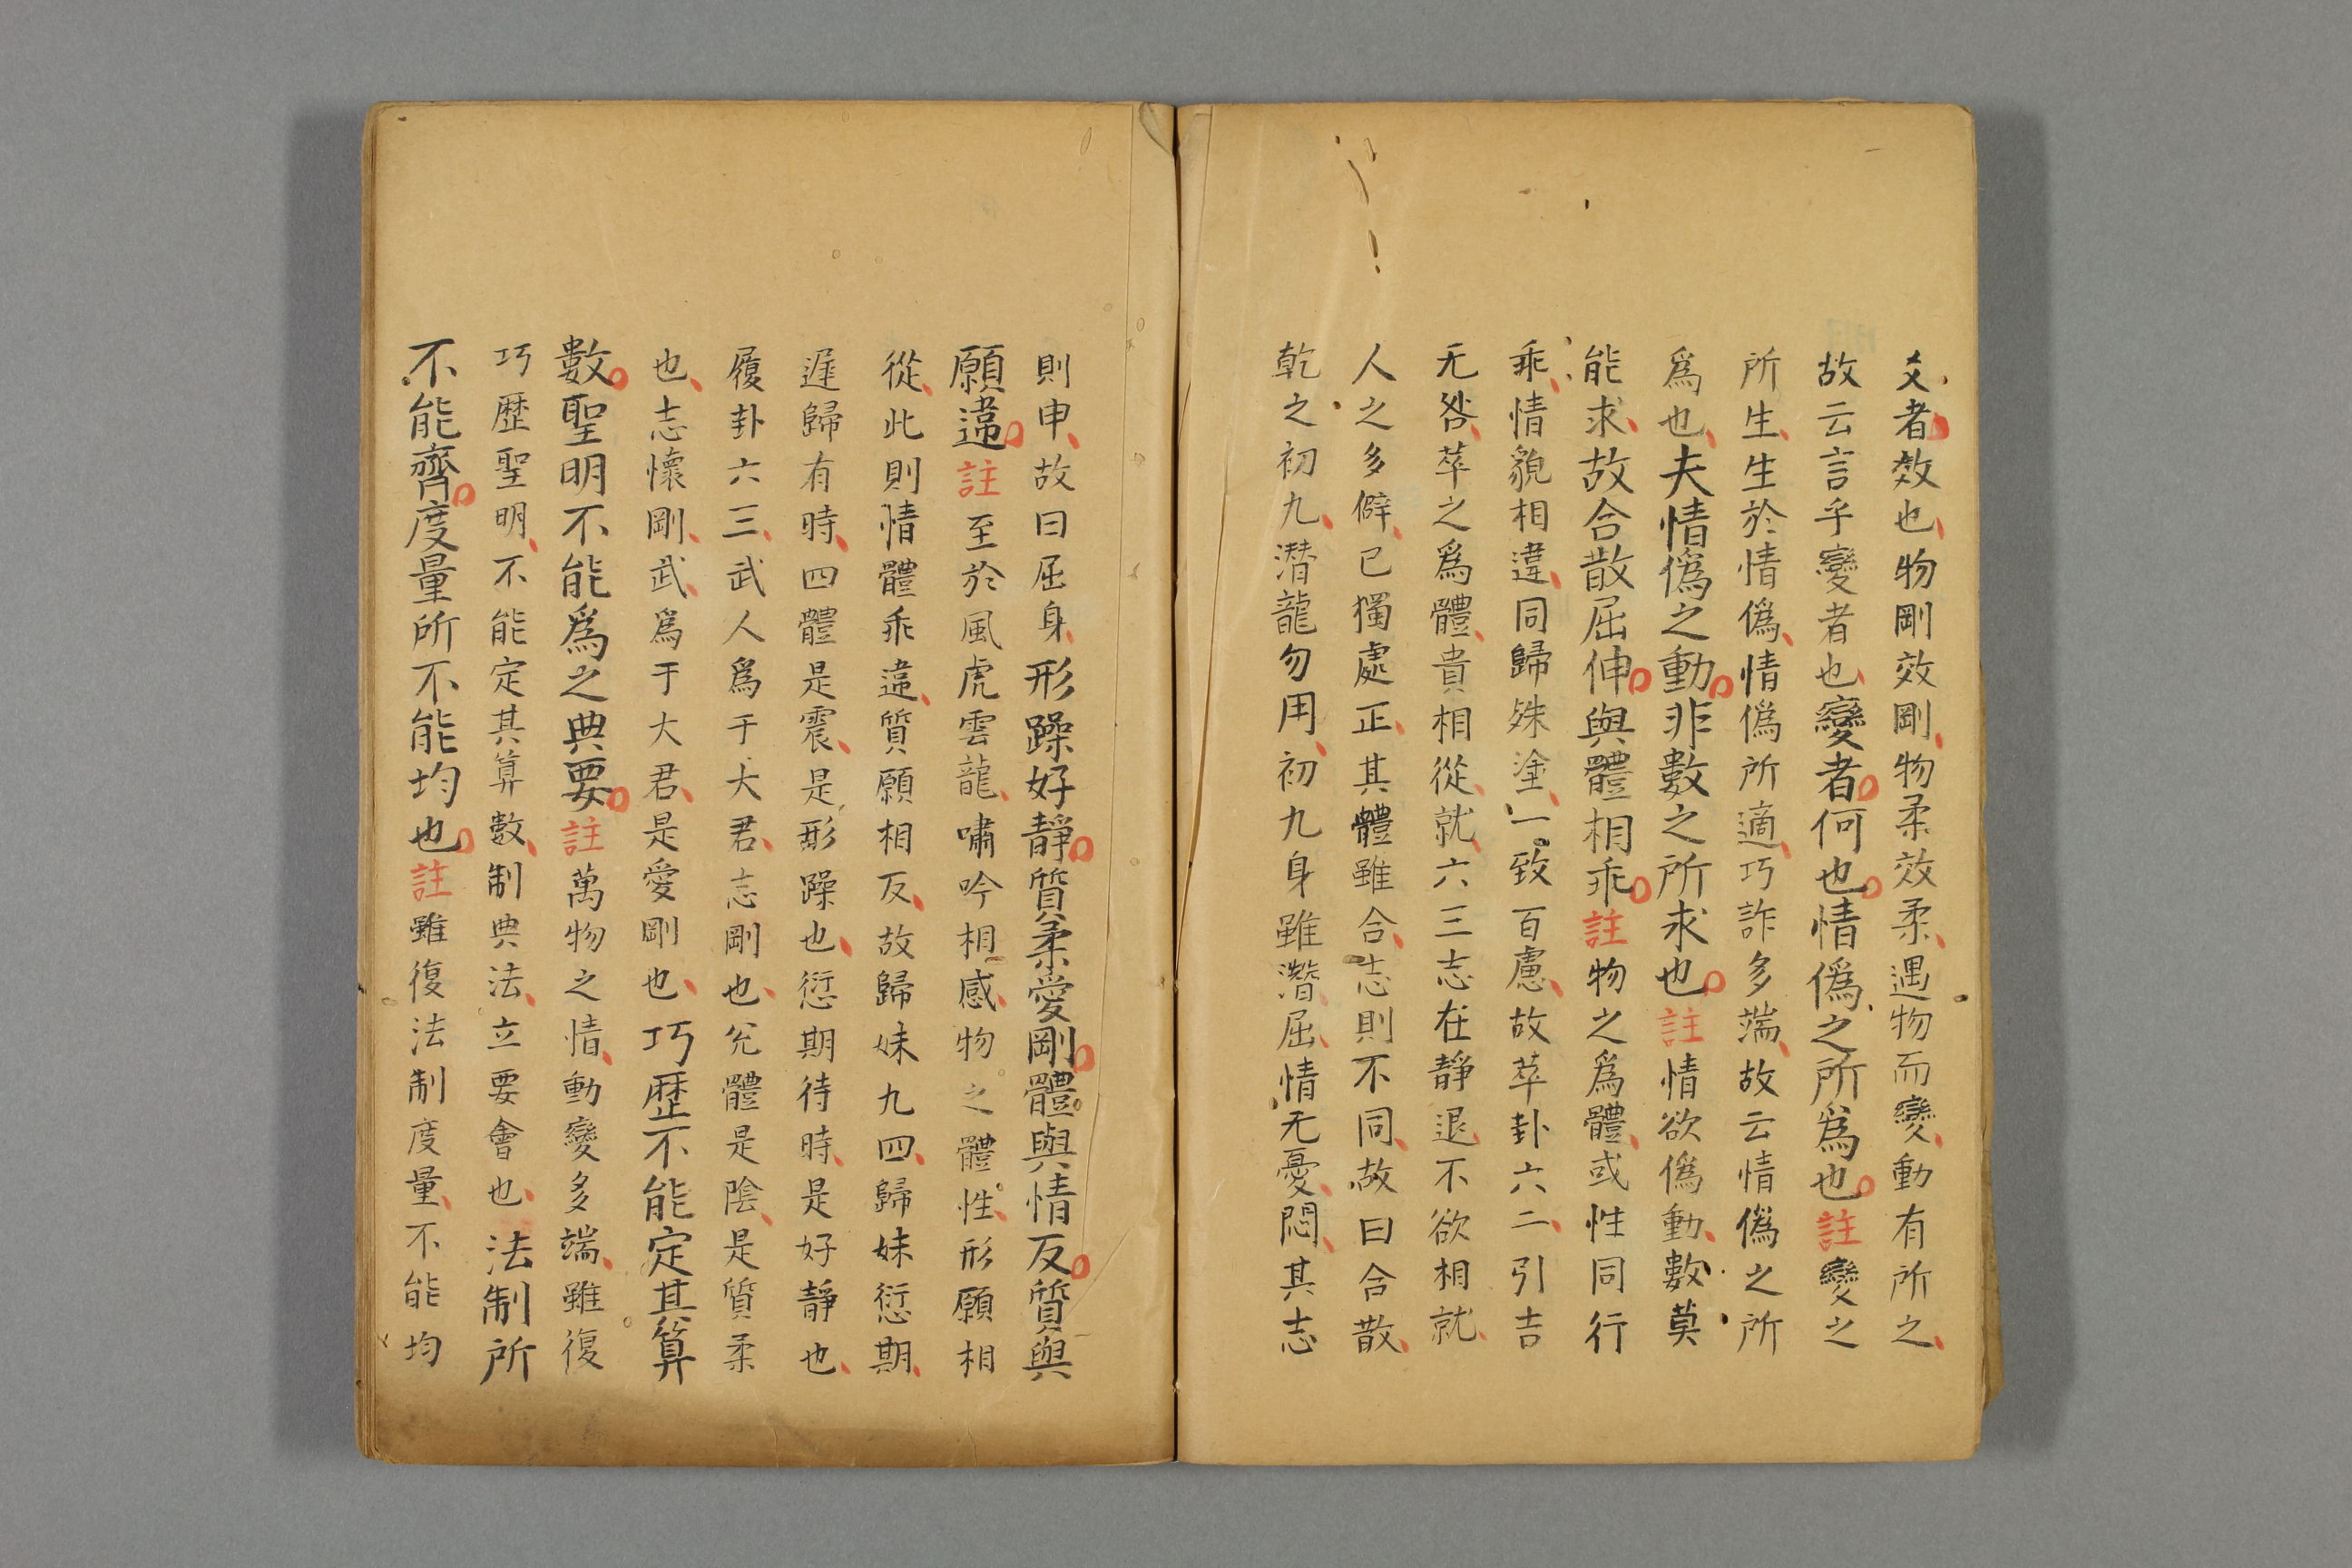 爻者效也物剛效剛物柔效柔遇物而變動有所之
故云言乎變者也變者何也情僞之所爲也註變之
所生生於情僞情僞所適巧詐多端故云情僞之所
爲也夫情僞之動非數之所求也註情欲僞動數莫
能求故合散屈伸與體相乖註物之爲體或性同行
乖情貌相違同歸殊塗一致百慮故萃卦六二引吉
无咎萃之爲體貴相從就六三志在靜退不欲相就
人之多僻已獨處正其體雖合志則不同故曰合散
乾之初九潛龍勿用初九身雖潛屈情无憂悶其志
則申故曰屈身形躁好靜質柔愛剛體與情反質與
願違註至於風虎雲龍嘯吟相感物之體性形願相
從此則情體乖違質願相反故歸妹九四歸妹愆期
遲歸有時四體是震是形躁也愆期待時是好靜也
履卦六三武人爲于大君志剛也兊體是陰是質柔
也志懷剛武爲于大君是愛剛也巧歷不能定其算
數聖明不能爲之典要註萬物之情動變多端雖復
巧歷聖明不能定其算數制典法立要會也法制所
不能齊度量所不能均也註雖復法制度量不能均